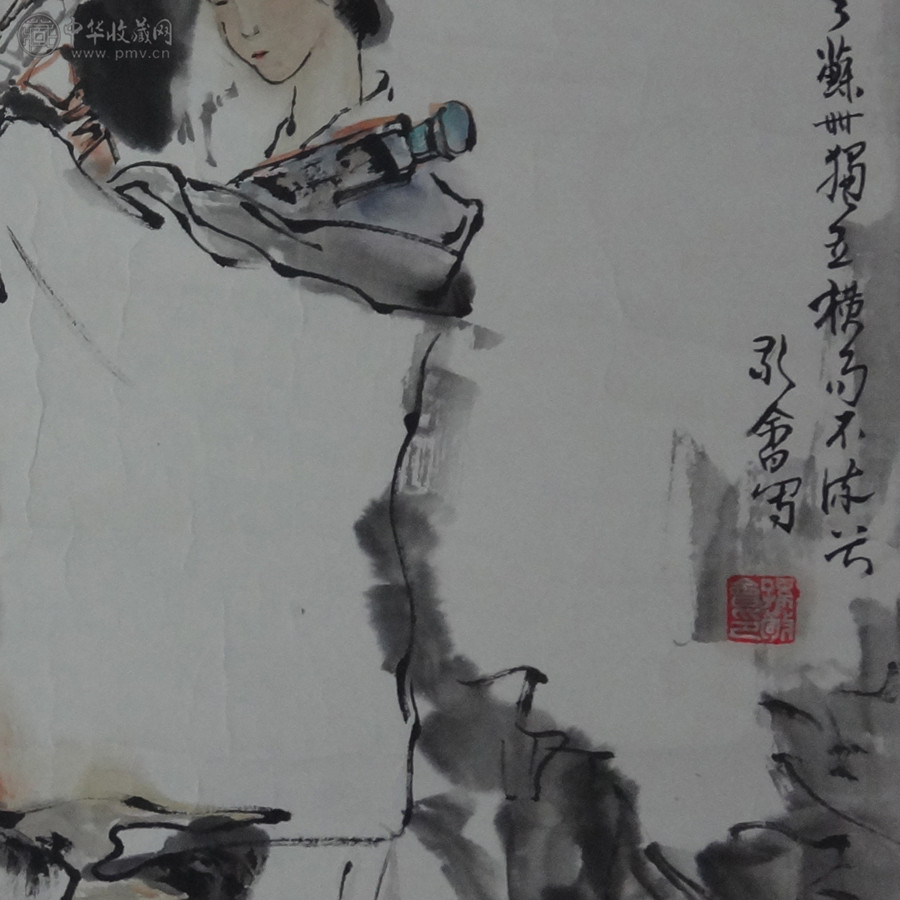 中华收藏网
www.pmv.cn
蘇世獨立橫而不流兮
會寫